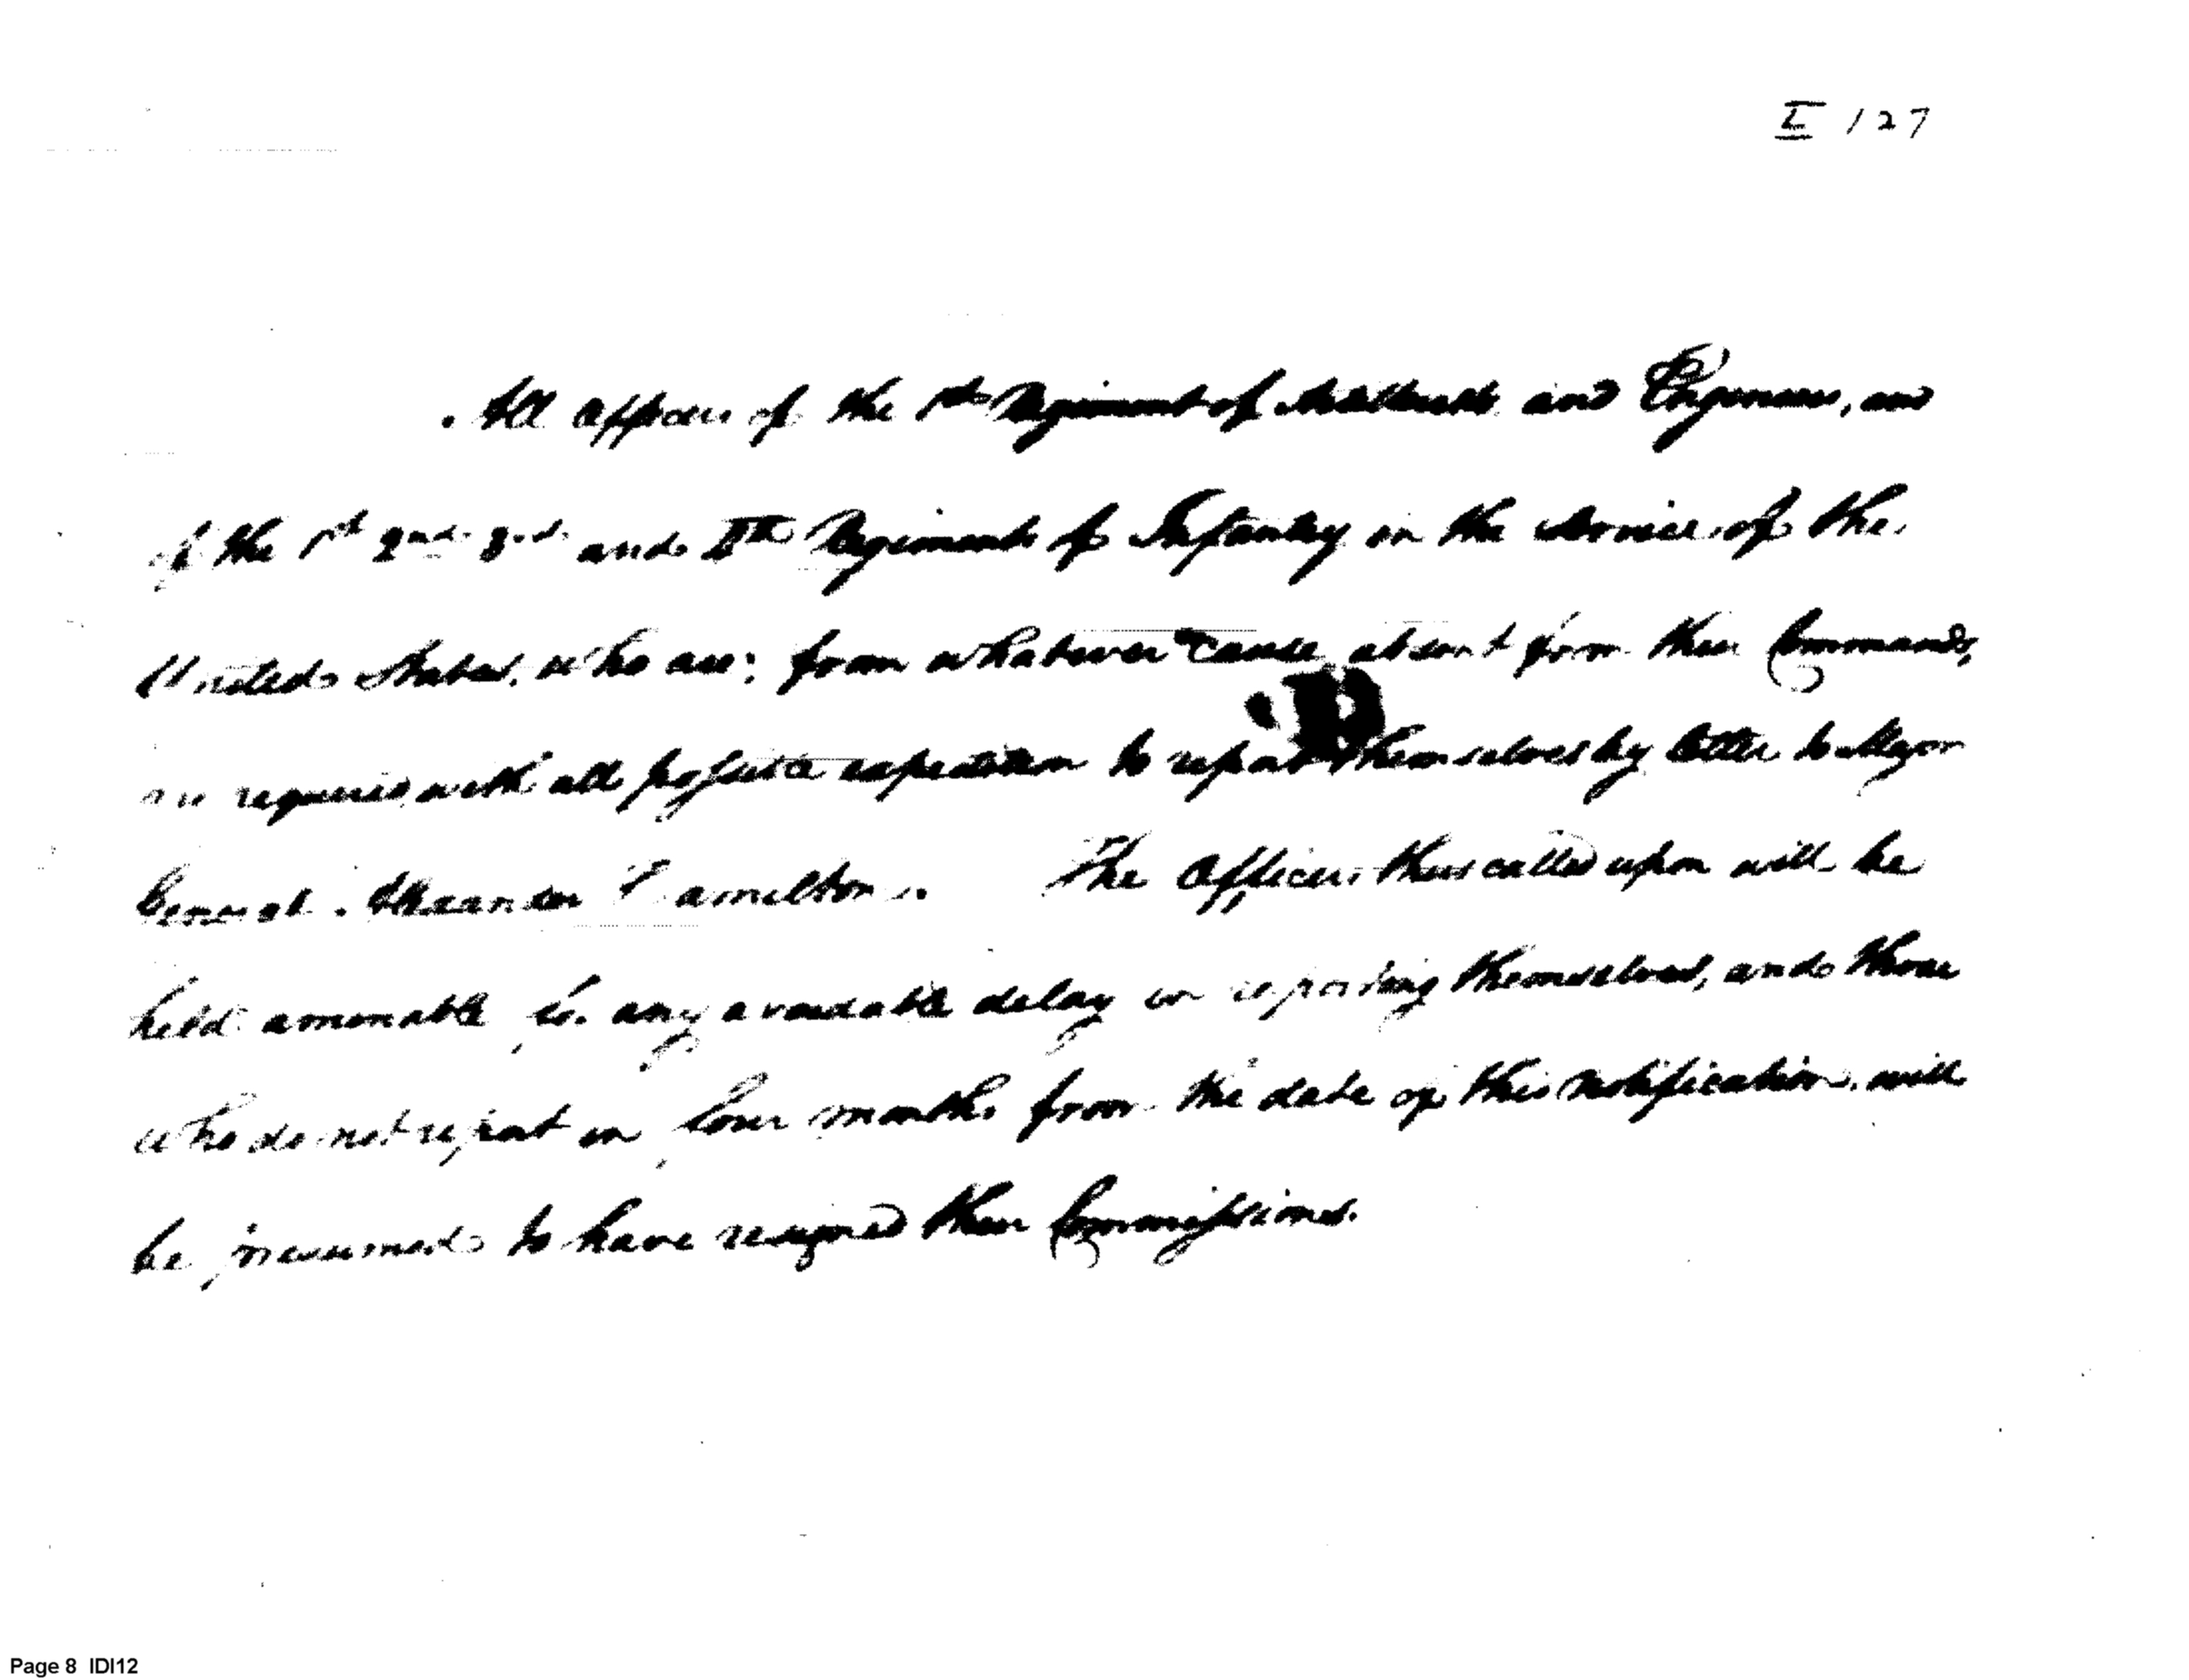 I 127
All officers of the 1st Regiment of Artillerists and Engineers, and
of the 1st 2nd. 3rd. and 4th Regiments of Infantry in the service of the
United States, who are; from whatever cause absent from their Commands,
are required with all possible expedition to report themselves by letter to Major
General. Alexander Hamilton. The Officers thus called upon will be
held amenable for any avoidable delay in reporting themselves, and those
who do not report in four months from the date of this notification, will
be presumed to have resigned their Commissions.
Page 8 IDI12